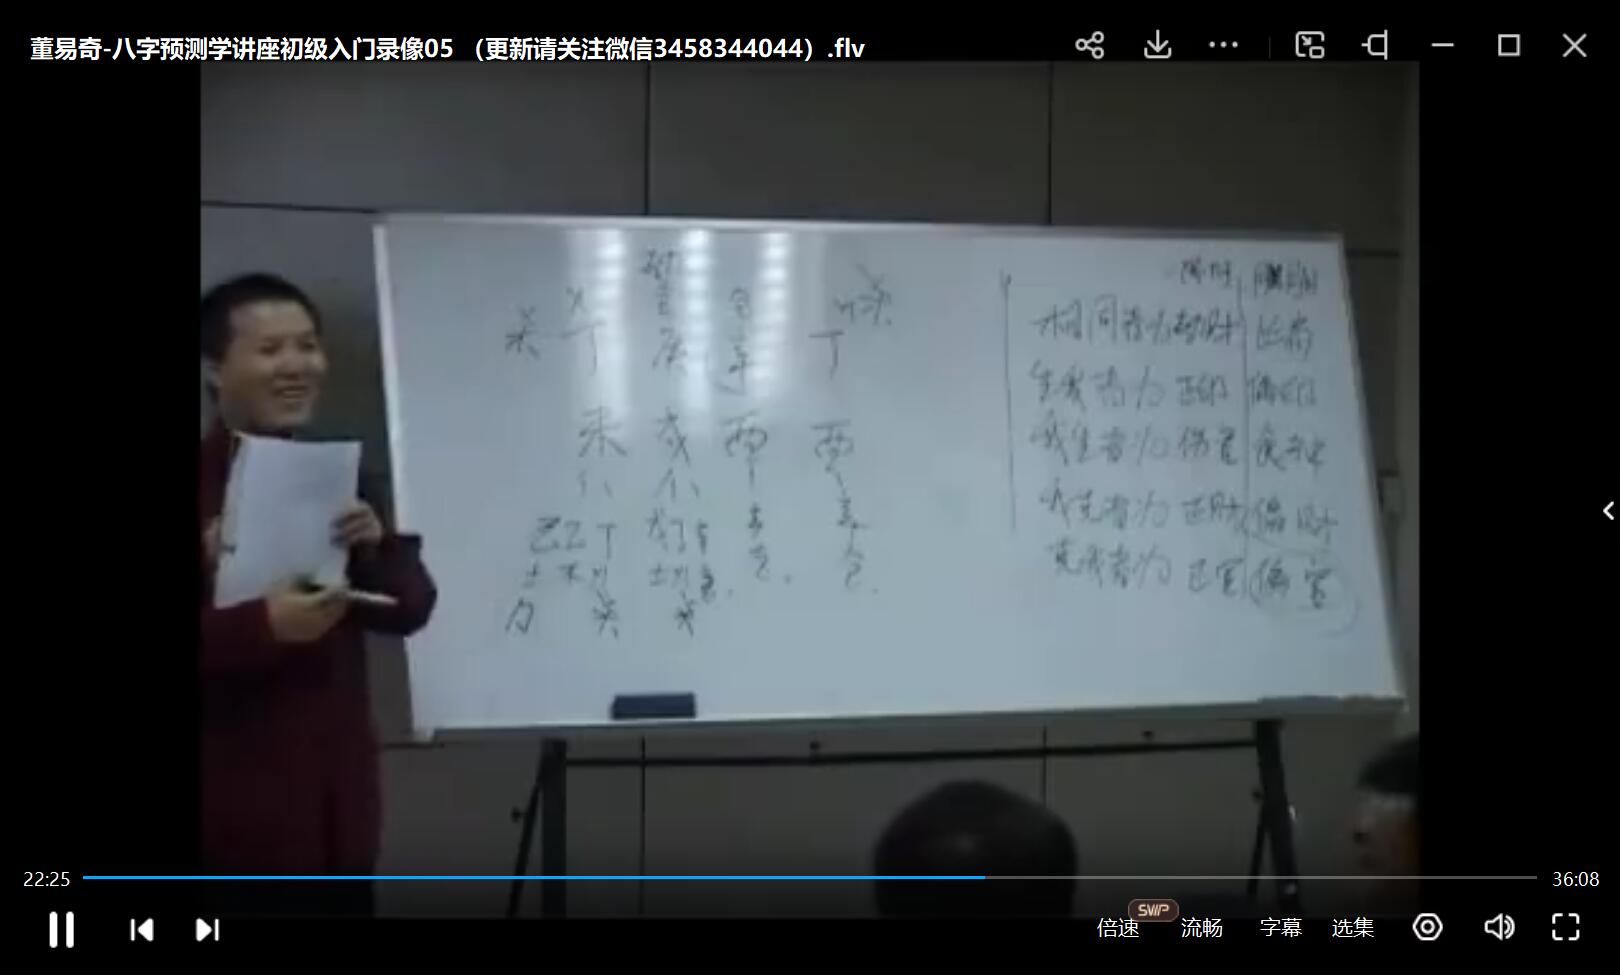 董易奇-八字预测学讲座初级入门录像05 （更新请关注微信3458344044）.flv
丁 庚 辛 丁
未 戌 酉 酉
己乙丁 戊丁辛
土木火 土火金
相同者为劫财 比肩
生我者为正印 偏印
我生者为伤官 食神
我克者为正财 偏财
克我者为 正官 偏官
22:25
36:08
SVIP
倍速 流畅 字幕 选集